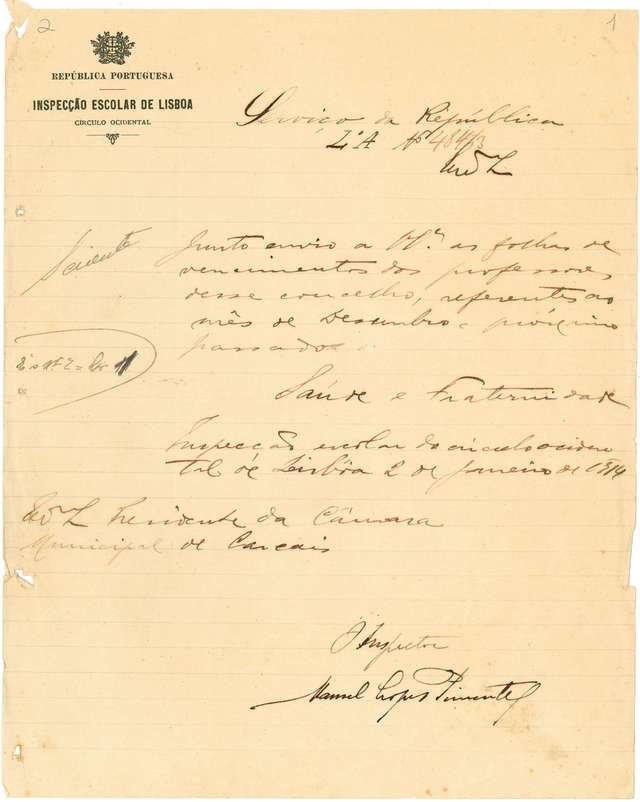 2
1
REPÚBLICA PORTUGUESA
INSPECÇÃO ESCOLAR DE LISBOA
CÍRCULO OCIDENTAL
Serviço da República
L.º A Nº 484/13
Sciente
Junto envio a V. as folhas de
vencimentos dos professores
desse concelho, referentes ao
mês de Desembro próximo
passado
Saúde e Fraternidade
Inspecção escolar do circulo ociden
tal de Lisbôa 2 de janeiro de 1914
Presidente da Câmara
Municipal de Cascais
O Inspector
Manuel Lopes Pimentel